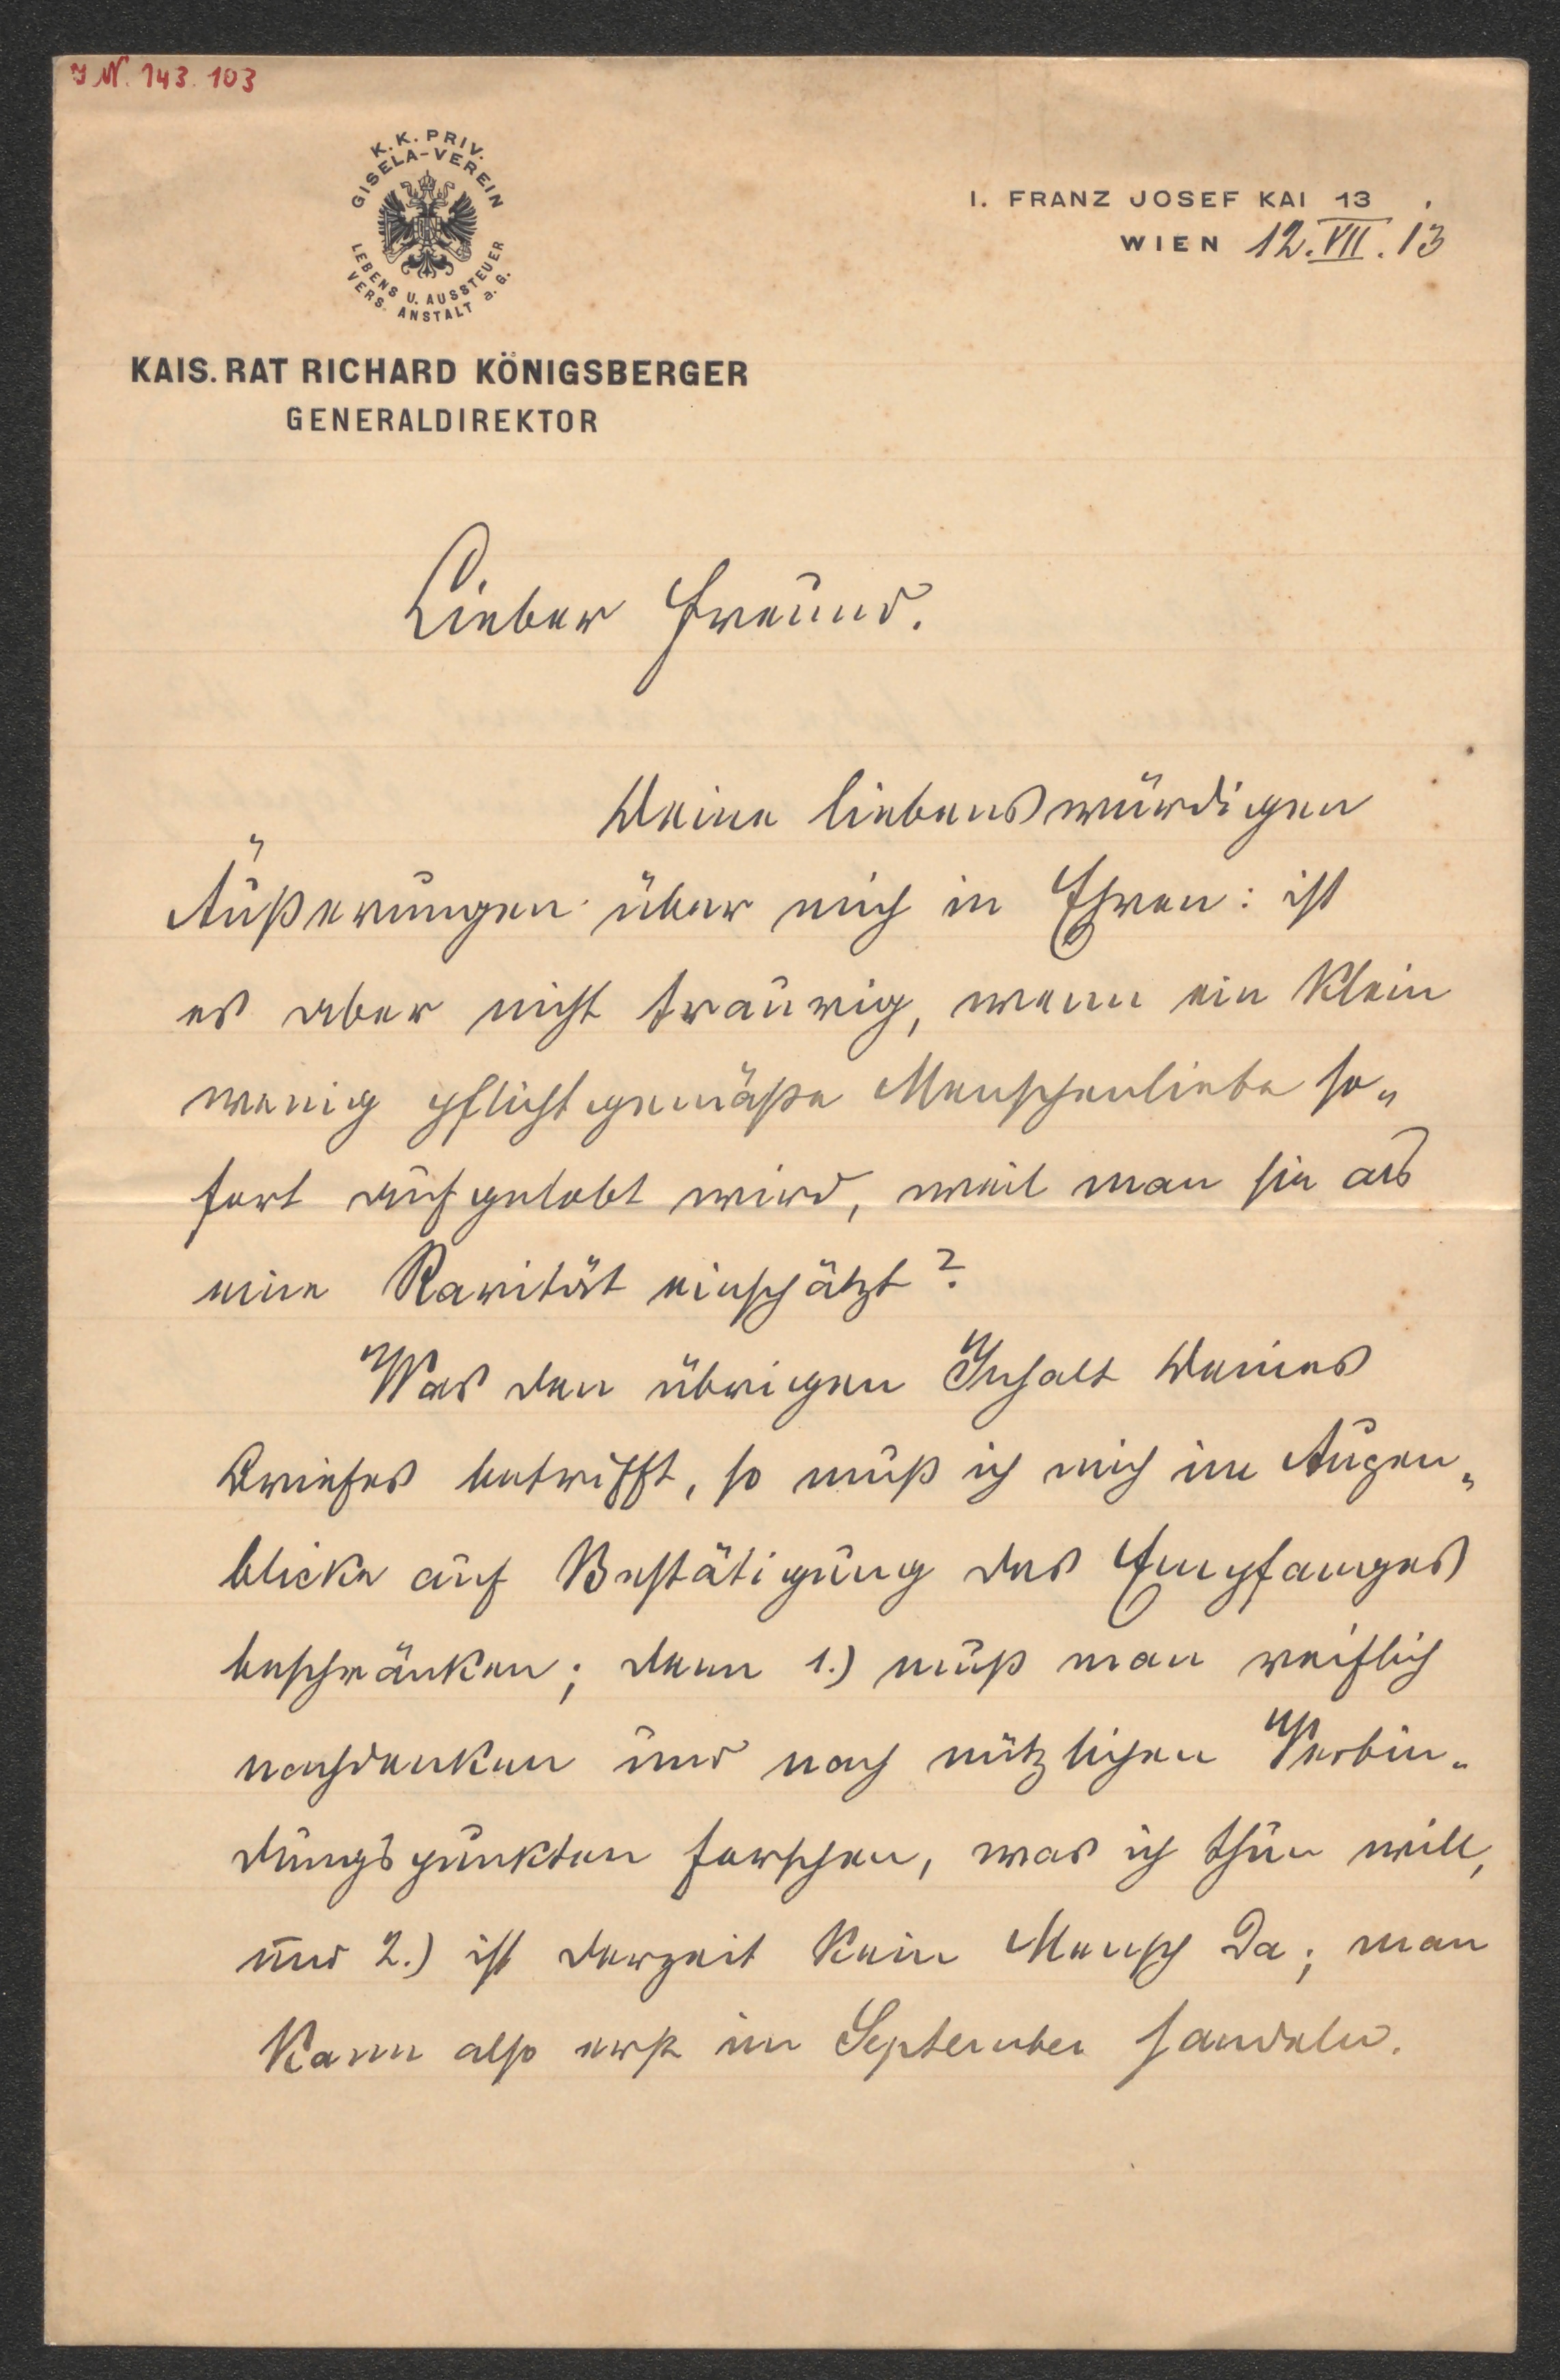 I.N. 143.103
K.K. PRIV.
GISELA-VEREIN
LEBENS U. AUSSTEUER
VERS. ANSTALT a. G.
I. FRANZ JOSEF KAI 13
WIEN 12.VII.13
KAIS. RAT RICHARD KÖNIGSBERGER
GENERALDIREKTOR
Lieber Freund.
Deine liebenswürdigen
Äußerungen über mich in Ehren: ist
es aber nicht traurig, wenn ein klein
wenig pflichtgemäße Menschenliebe so„
fort aufgelobt wird, weil man sie als
eine Rarität einschätzt?
Was den übrigen Inhalt Deines
Briefes betrifft, so muß ich mich im Augen„
blicke auf Bestätigung des Empfanges
beschränken; denn 1.) muß man reiflich
nachdenken und nach nützlichen Verbin„
dungspunkten forschen, was ich thun will,
und 2.) ist derzeit kein Mensch da; man
kann also erst im September handeln.